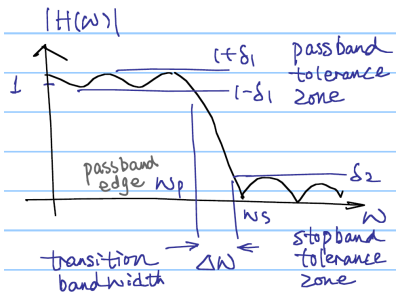 |H(w)|
1+δ₁
passband
tolerance
zone
1
1-δ₁
passband
edge wp
δ₂
ws
w
transition
bandwidth
Δw
stopband
tolerance
zone